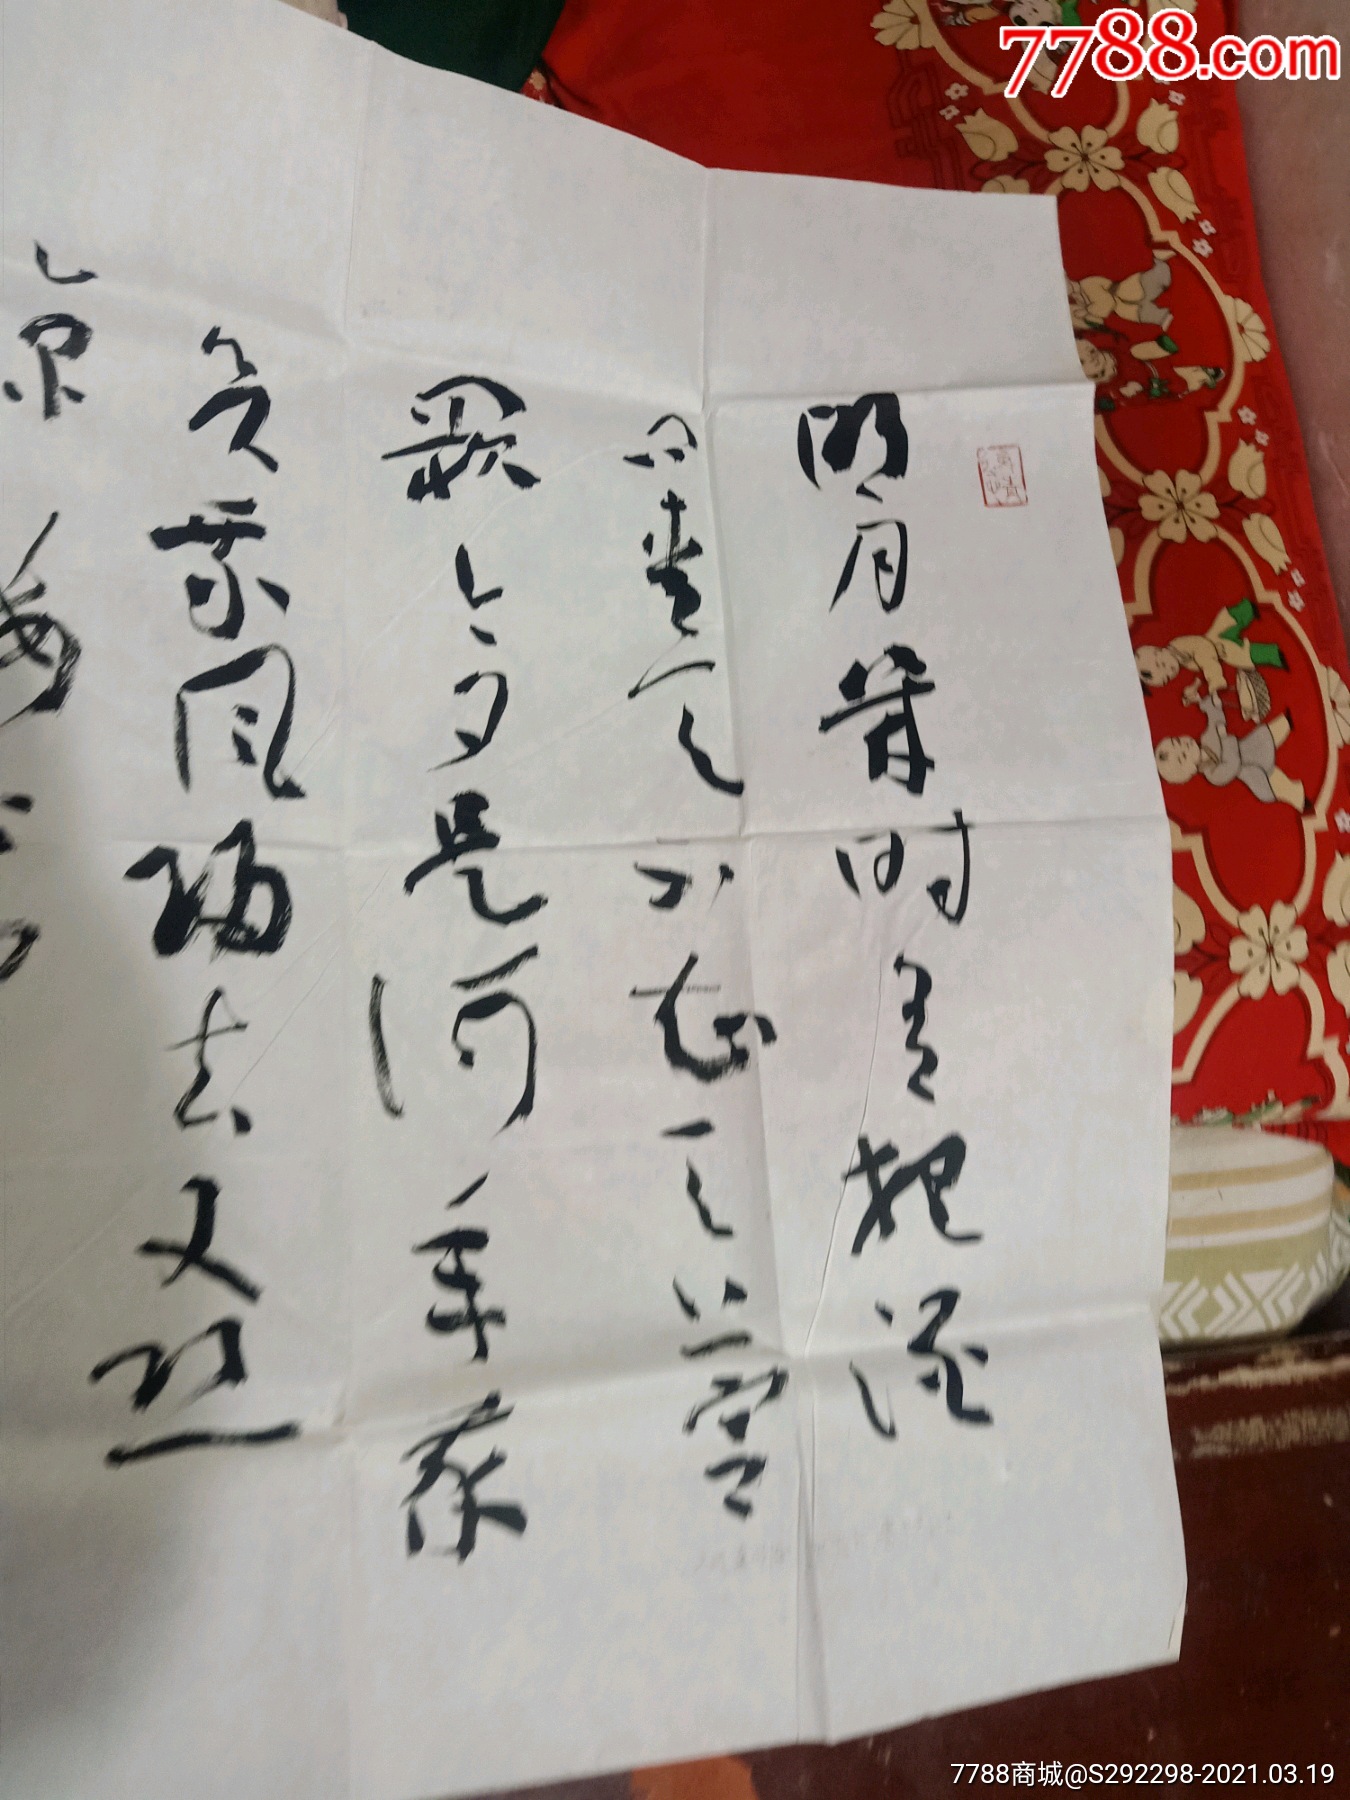 7788.com
明月幾时有把酒
问青天不知天上宫
闕今夕是何年我
欲乘风歸去又恐
7788商城@S292298-2021.03.19